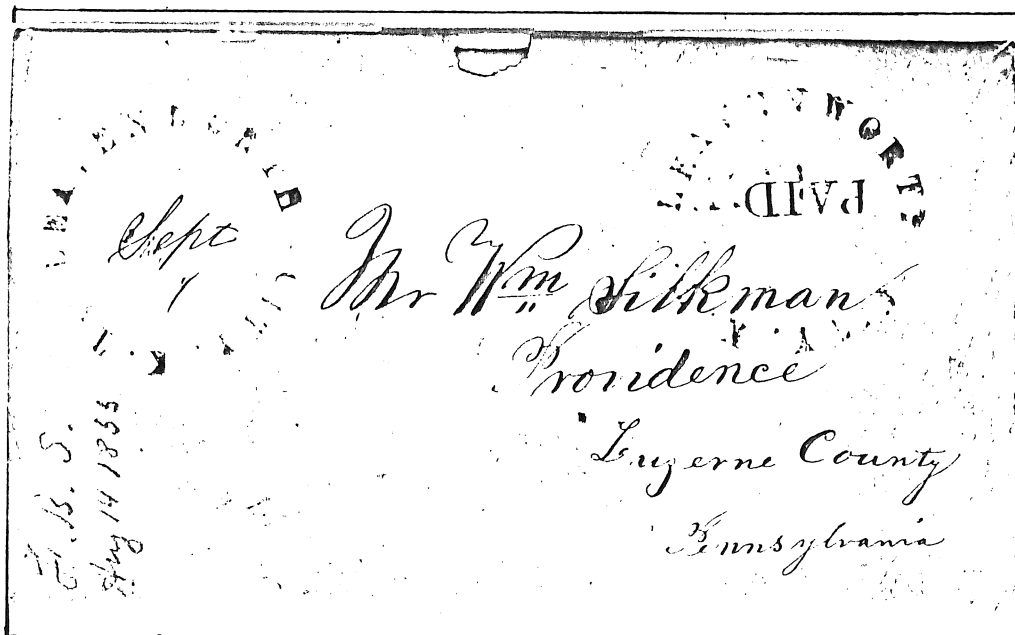 LEAVENWORTH
CITY K. T.
Sept
1
LEAVENWORTH
PAID
Mr Wm Silkman
Providence
Luzerne County
Pennsylvania
E. B. S.
Aug 14 1855